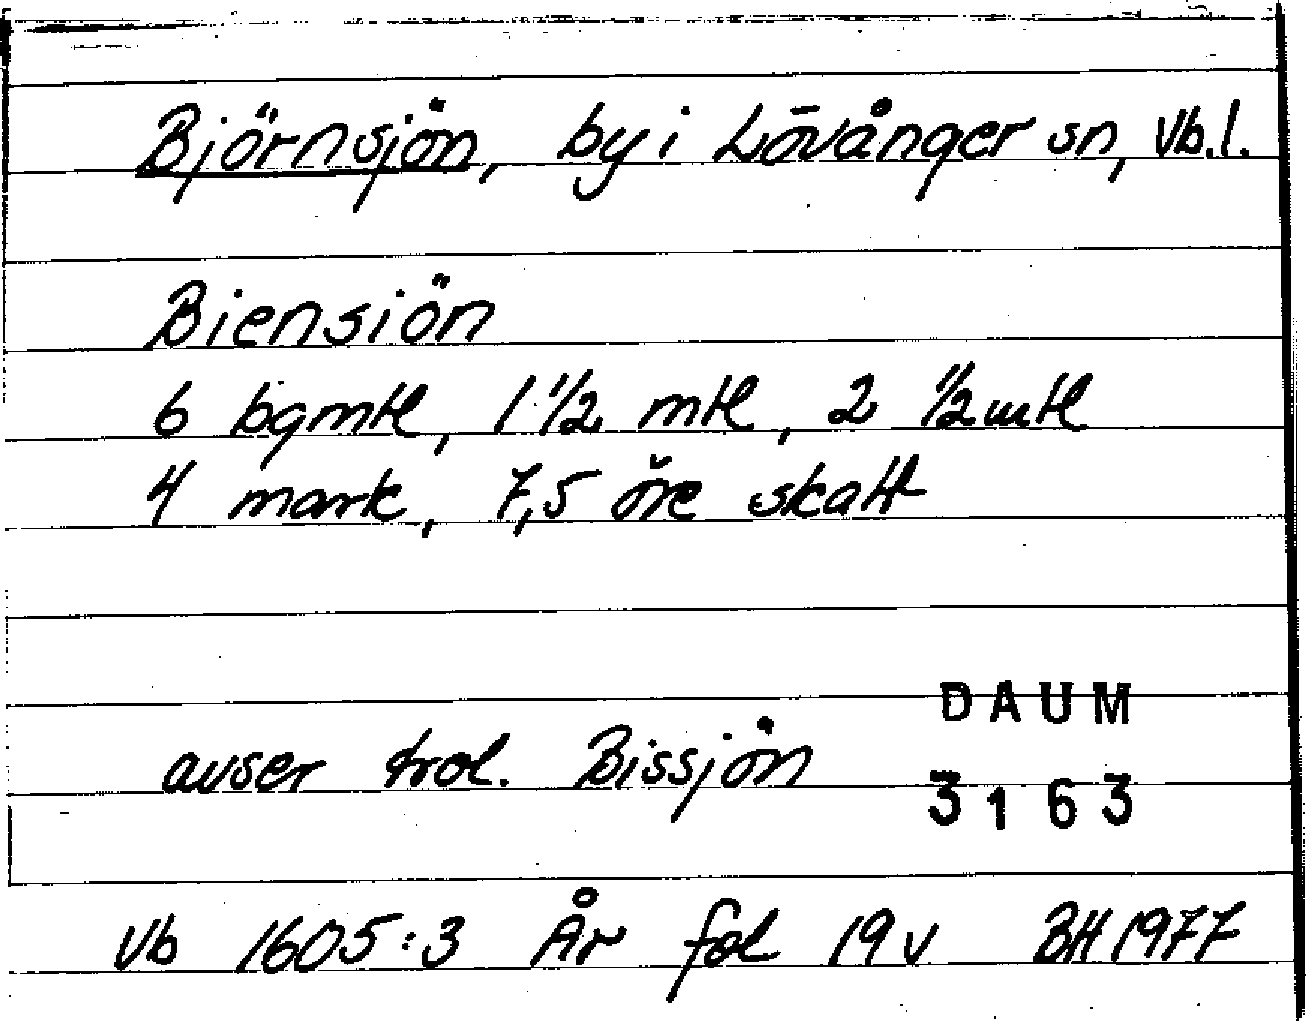 Björnsjön, by i Lövånger sn, Vb.l.
Biensiön
6 bgmtl, 1 1/2 mtl, 2 1/2 mtl
4 mark, 7,5 öre skatt
avser trol. Bissjön
DAUM
3163
Vb 1605:3 År fol 19 v BH 1977